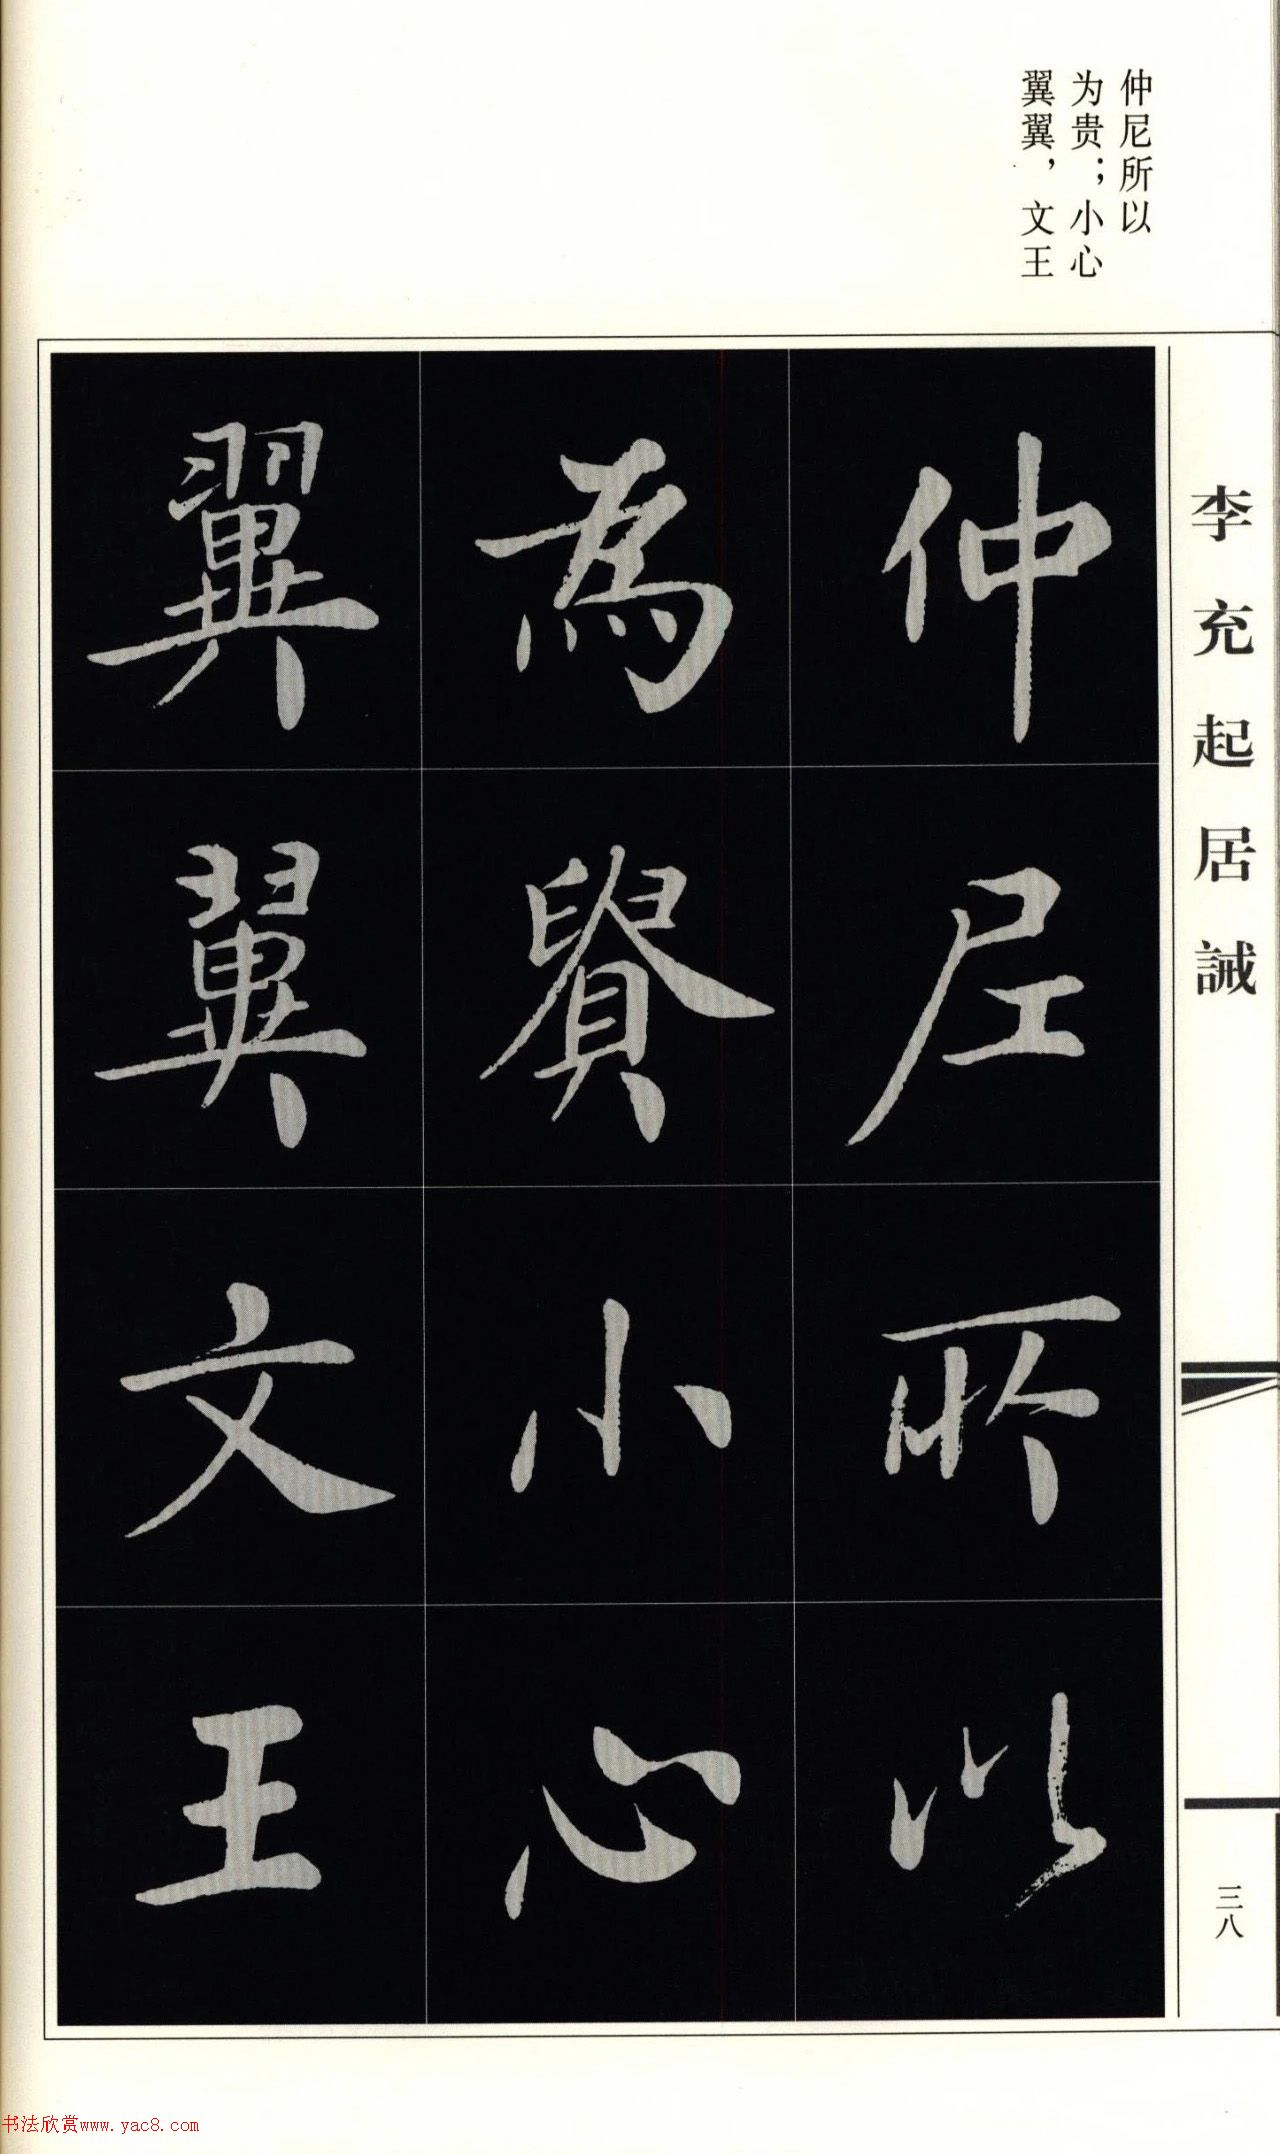 仲尼所以
为贵；小心
翼翼，文王
李充起居誡
仲尼所以
為貴小心
翼翼文王
三八
书法欣赏www.yac8.com